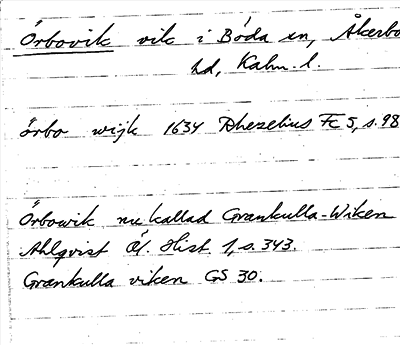 Örbovik vik i Böda sn, Åkerbo
hd, Kalm. l.
örbo wijk 1634 Rhezelius Fc 5, s. 98
Örbowik nu kallad Grankulla-Wiken
Ahlqvist Öl. Hist. 1, s. 343.
Grankulla viken GS 30.